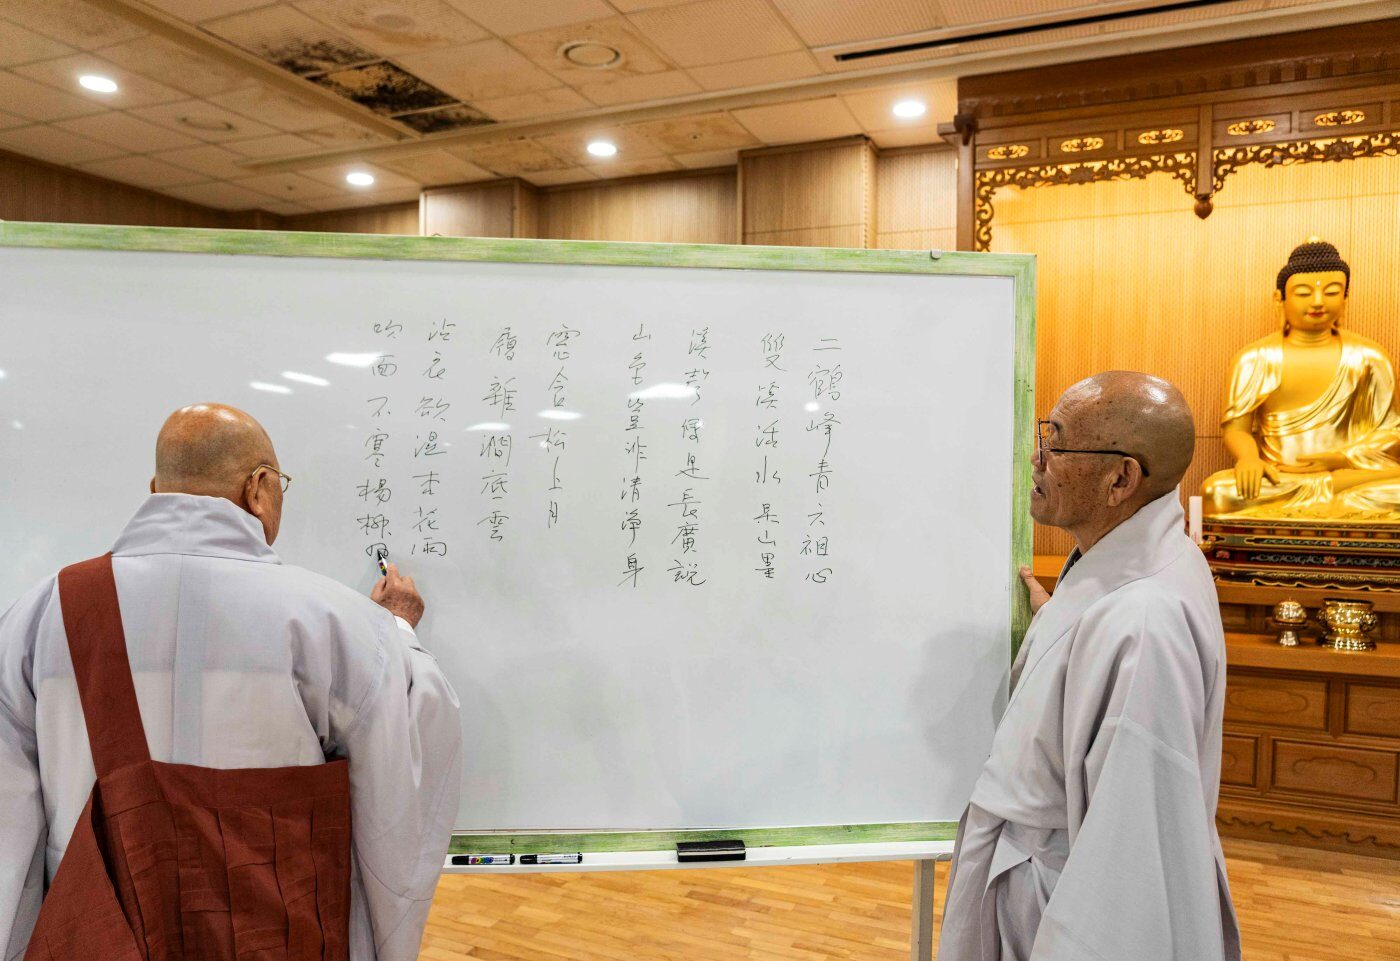 二鶴峰青六祖心
雙溪活水杲山墨
溪聲便是長廣説
山色豈非清淨身
窓含松上月
履雜澗底雲
沾衣欲濕杏花雨
吹面不寒楊柳